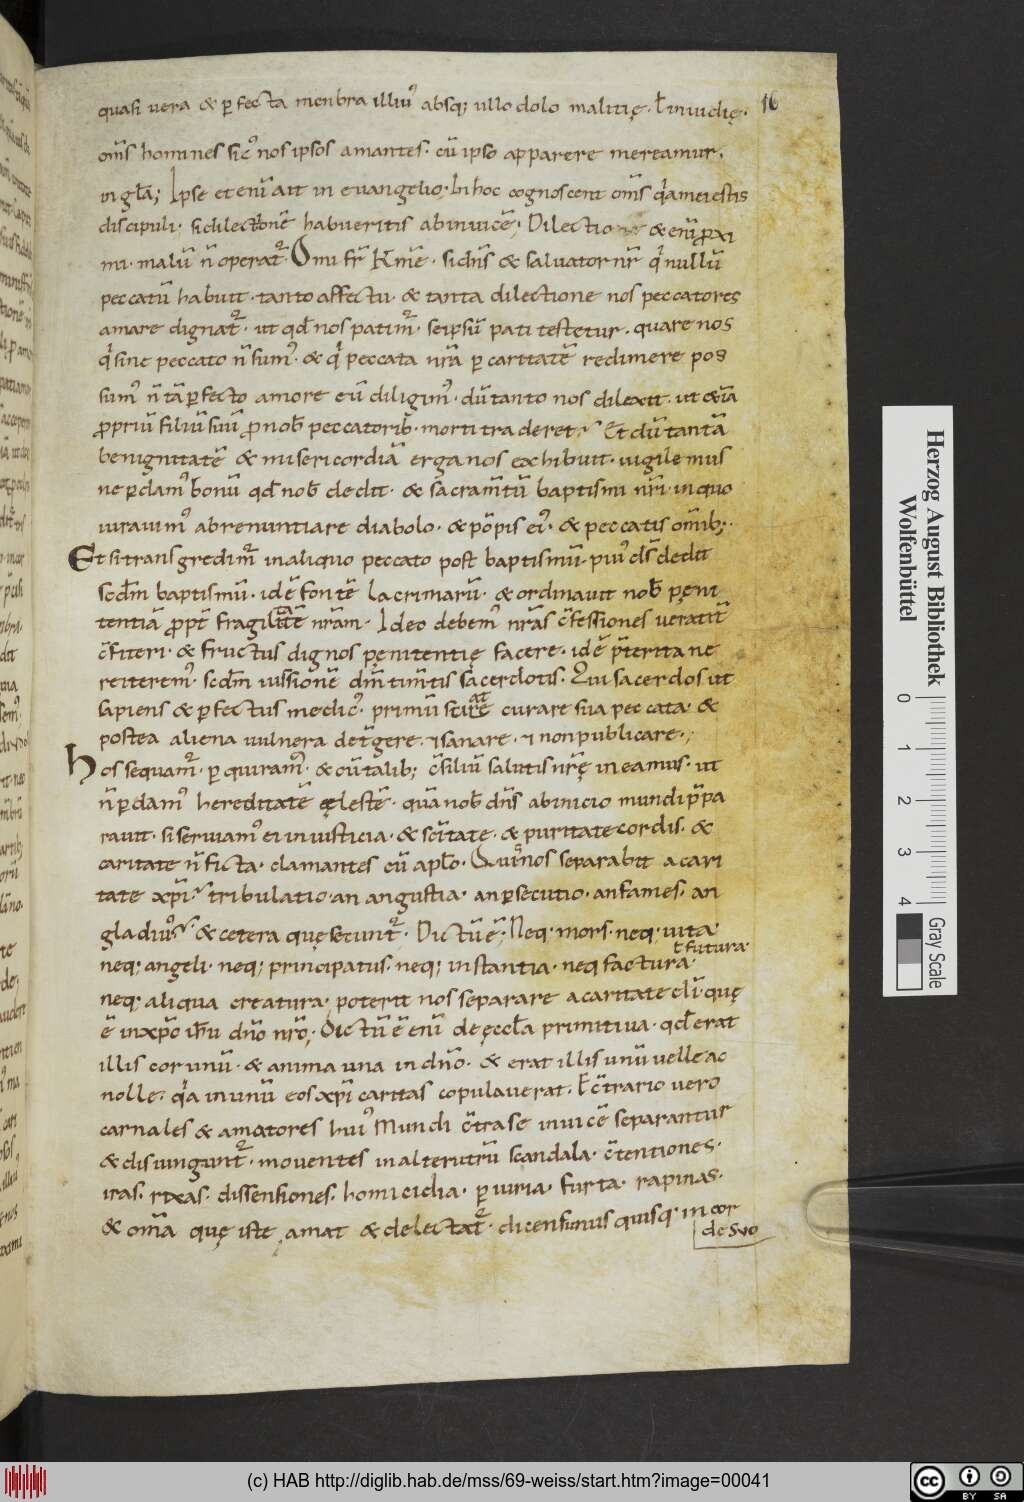 16
quasi vera & ꝑfecta menbra illiuꝰ absq; ullo dolo malitię · ł inuidię ·
om̄s homines sicꝰ nos ipsos amantes · cū ipso apparere mereamur ·
in gƚa; Ipse etenī ait in euangelio · In hoc cognoscent om̄s qͥa mei estis
discipuli · si dilectionē habueritis abinuicē; Dilectio & enī ꝓxi
mi · malū n̄ operat᷑ · O mi fr̄ Km̄e · si dn̄s & saluator nr̄ qͥ nullū
peccatū habuit · tanto affectu · & tanta dilectione nos peccatores
amare dignat᷑ · ut qd̄ nos patim᷑ · seipsū pati testetur · quare nos
qͥ sine peccato n̄ sumꝰ · & qͥ peccata nr̄a ꝑ caritatē redimere pos
sumꝰ n̄ tā ꝑfecto amore eū diligimꝰ · dū tanto nos dilexit · ut &iā
ꝓpriū filiū suū ꝓ nob̄ peccatorib; morti traderet · Et dū tantā
benignitatē & misericordiā erga nos exhibuit · uigilemus
ne ꝑdamꝰ bonū qd̄ nob̄ dedit · & sacram̄tū baptismi nr̄i · in quo
iurauimꝰ abrenuntiare diabolo · & pōpis eiꝰ · & peccatis om̄ib; ·
Et si transgredim᷑ in aliquo peccato post baptismū · piuꝰ dn̄s dedit
scd̄m baptismū · id ē fontē lacrimarū · & ordinauit nob̄ pęni
tentiā ꝓpt̄ fragilitatē nr̄am · Ideo debemꝰ nr̄as c̄fessiones ueratit̄
c̄fiteri · & fructus dignos pęnitentię facere · id ē p̄terita ne
reiteremꝰ · scd̄m iussionē dm̄ tim̄tis sacerdotis · Qui sacerdos ut
sapiens & ꝑfectus medicꝰ · primū sciat curare sua peccata · &
postea aliena uulnera det̄gere · & sanare · & non publicare ·
Hos sequam᷑ · ꝑ qui uramꝰ · & cū talib; c̄siliū salutis nr̄ę ineamus · ut
n̄ ꝑdamꝰ hereditatē cęlestē · quā nob̄ dn̄s ab inicio mundi p̄pa
rauit · si seruiamꝰ ei in iusticia · & sc̄itate · & puritate cordis · &
caritate n̄ ficta · clamantes cū apƚo · Quis nos separabit a cari
tate xp̄i · tribulatio · an angustia · an ꝑsecutio · an fames · an
gladiuꝰ · & cetera quę secunt᷑ · Dictū ē; Neq; mors · neq; uita ·
ł futura ·
neq; angeli · neq; principatus · neq; instantia · neq factura ·
neq; aliqua creatura · poterit nos separare a caritate dī · quę
ē in xp̄o ih̄u dn̄o nr̄o; Dictū ē enī de ęccƚa primitiua · qd̄ erat
illis cor unū · & anima una in dn̄o · & erat illis unū uelle ac
nolle · qͥa in unū eos xp̄i caritas copulauerat · E c̄trario uero
carnales & amatores huiꝰ Mundi c̄tra se inuicē separantur
& disiungunt᷑ · mouentes in alterutrū scandala · c̄tentiones ·
iras · rixas · dissensiones · homicidia · ꝑiuria · furta · rapinas ·
& om̄a quę iste amat & delectat᷑ · dicens unus quisq; in cor
de suo
Herzog August Bibliothek
Wolfenbüttel
0 1 2 3 4
Gray Scale
(c) HAB http://diglib.hab.de/mss/69-weiss/start.htm?image=00041
cc BY SA